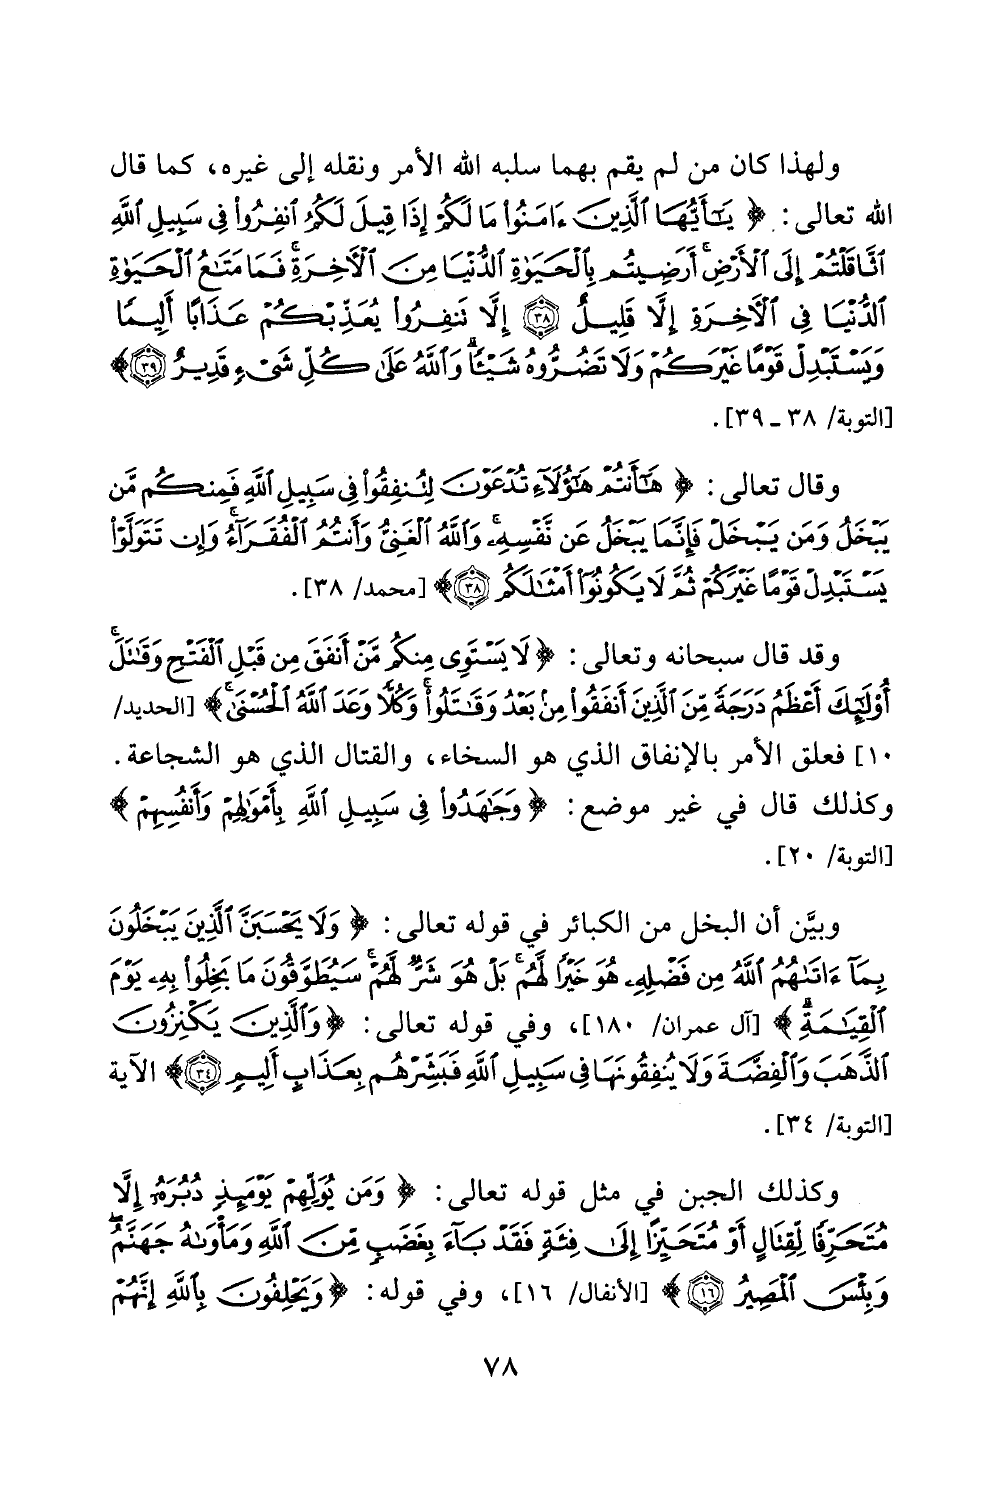 ولهذا كان من لم يقم بهما سلبه الله الأمر ونقله إلى غيره، كما قال
الله تعالى: ﴿ يَٰٓأَيُّهَا ٱلَّذِينَ ءَامَنُوا۟ مَا لَكُمْ إِذَا قِيلَ لَكُمُ ٱنفِرُوا۟ فِى سَبِيلِ ٱللَّهِ
ٱثَّاقَلْتُمْ إِلَى ٱلْأَرْضِ ۚ أَرَضِيتُم بِٱلْحَيَوٰةِ ٱلدُّنْيَا مِنَ ٱلْـَٔاخِرَةِ ۚ فَمَا مَتَٰعُ ٱلْحَيَوٰةِ
ٱلدُّنْيَا فِى ٱلْـَٔاخِرَةِ إِلَّا قَلِيلٌ ٣٨ إِلَّا تَنفِرُوا۟ يُعَذِّبْكُمْ عَذَابًا أَلِيمًا
وَيَسْتَبْدِلْ قَوْمًا غَيْرَكُمْ وَلَا تَضُرُّوهُ شَيْـًٔا ۗ وَٱللَّهُ عَلَىٰ كُلِّ شَىْءٍ قَدِيرٌ ٣٩﴾
[التوبة/ ٣٨ ـ ٣٩].
وقال تعالى: ﴿ هَٰٓأَنتُمْ هَٰٓؤُلَآءِ تُدْعَوْنَ لِتُنفِقُوا۟ فِى سَبِيلِ ٱللَّهِ فَمِنكُم مَّن
يَبْخَلُ ۖ وَمَن يَبْخَلْ فَإِنَّمَا يَبْخَلُ عَن نَّفْسِهِۦ ۚ وَٱللَّهُ ٱلْغَنِىُّ وَأَنتُمُ ٱلْفُقَرَآءُ ۚ وَإِن تَتَوَلَّوْا۟
يَسْتَبْدِلْ قَوْمًا غَيْرَكُمْ ثُمَّ لَا يَكُونُوٓا۟ أَمْثَٰلَكُم ٣٨﴾ [محمد/ ٣٨].
وقد قال سبحانه وتعالى: ﴿ لَا يَسْتَوِى مِنكُم مَّنْ أَنفَقَ مِن قَبْلِ ٱلْفَتْحِ وَقَٰتَلَ ۚ
أُو۟لَٰٓئِكَ أَعْظَمُ دَرَجَةً مِّنَ ٱلَّذِينَ أَنفَقُوا۟ مِنۢ بَعْدُ وَقَٰتَلُوا۟ ۚ وَكُلًّا وَعَدَ ٱللَّهُ ٱلْحُسْنَىٰ ۚ ﴾ [الحديد/
١٠] فعلق الأمر بالإنفاق الذي هو السخاء، والقتال الذي هو الشجاعة.
وكذلك قال في غير موضع: ﴿ وَجَٰهَدُوا۟ فِى سَبِيلِ ٱللَّهِ بِأَمْوَٰلِهِمْ وَأَنفُسِهِمْ ﴾
[التوبة/ ٢٠].
وبيَّن أن البخل من الكبائر في قوله تعالى: ﴿ وَلَا يَحْسَبَنَّ ٱلَّذِينَ يَبْخَلُونَ
بِمَآ ءَاتَىٰهُمُ ٱللَّهُ مِن فَضْلِهِۦ هُوَ خَيْرًا لَّهُم ۖ بَلْ هُوَ شَرٌّ لَّهُمْ ۖ سَيُطَوَّقُونَ مَا بَخِلُوا۟ بِهِۦ يَوْمَ
ٱلْقِيَٰمَةِ ۗ ﴾ [آل عمران/ ١٨٠]، وفي قوله تعالى: ﴿ وَٱلَّذِينَ يَكْنِزُونَ
ٱلذَّهَبَ وَٱلْفِضَّةَ وَلَا يُنفِقُونَهَا فِى سَبِيلِ ٱللَّهِ فَبَشِّرْهُم بِعَذَابٍ أَلِيمٍ ٣٤﴾ الآية
[التوبة/ ٣٤].
وكذلك الجبن في مثل قوله تعالى: ﴿ وَمَن يُوَلِّهِمْ يَوْمَئِذٍ دُبُرَهُۥٓ إِلَّا
مُتَحَرِّفًا لِّقِتَالٍ أَوْ مُتَحَيِّزًا إِلَىٰ فِئَةٍ فَقَدْ بَآءَ بِغَضَبٍ مِّنَ ٱللَّهِ وَمَأْوَىٰهُ جَهَنَّمُ ۖ
وَبِئْسَ ٱلْمَصِيرُ ١٦﴾ [الأنفال/ ١٦]، وفي قوله: ﴿ وَيَحْلِفُونَ بِٱللَّهِ إِنَّهُمْ
٧٨